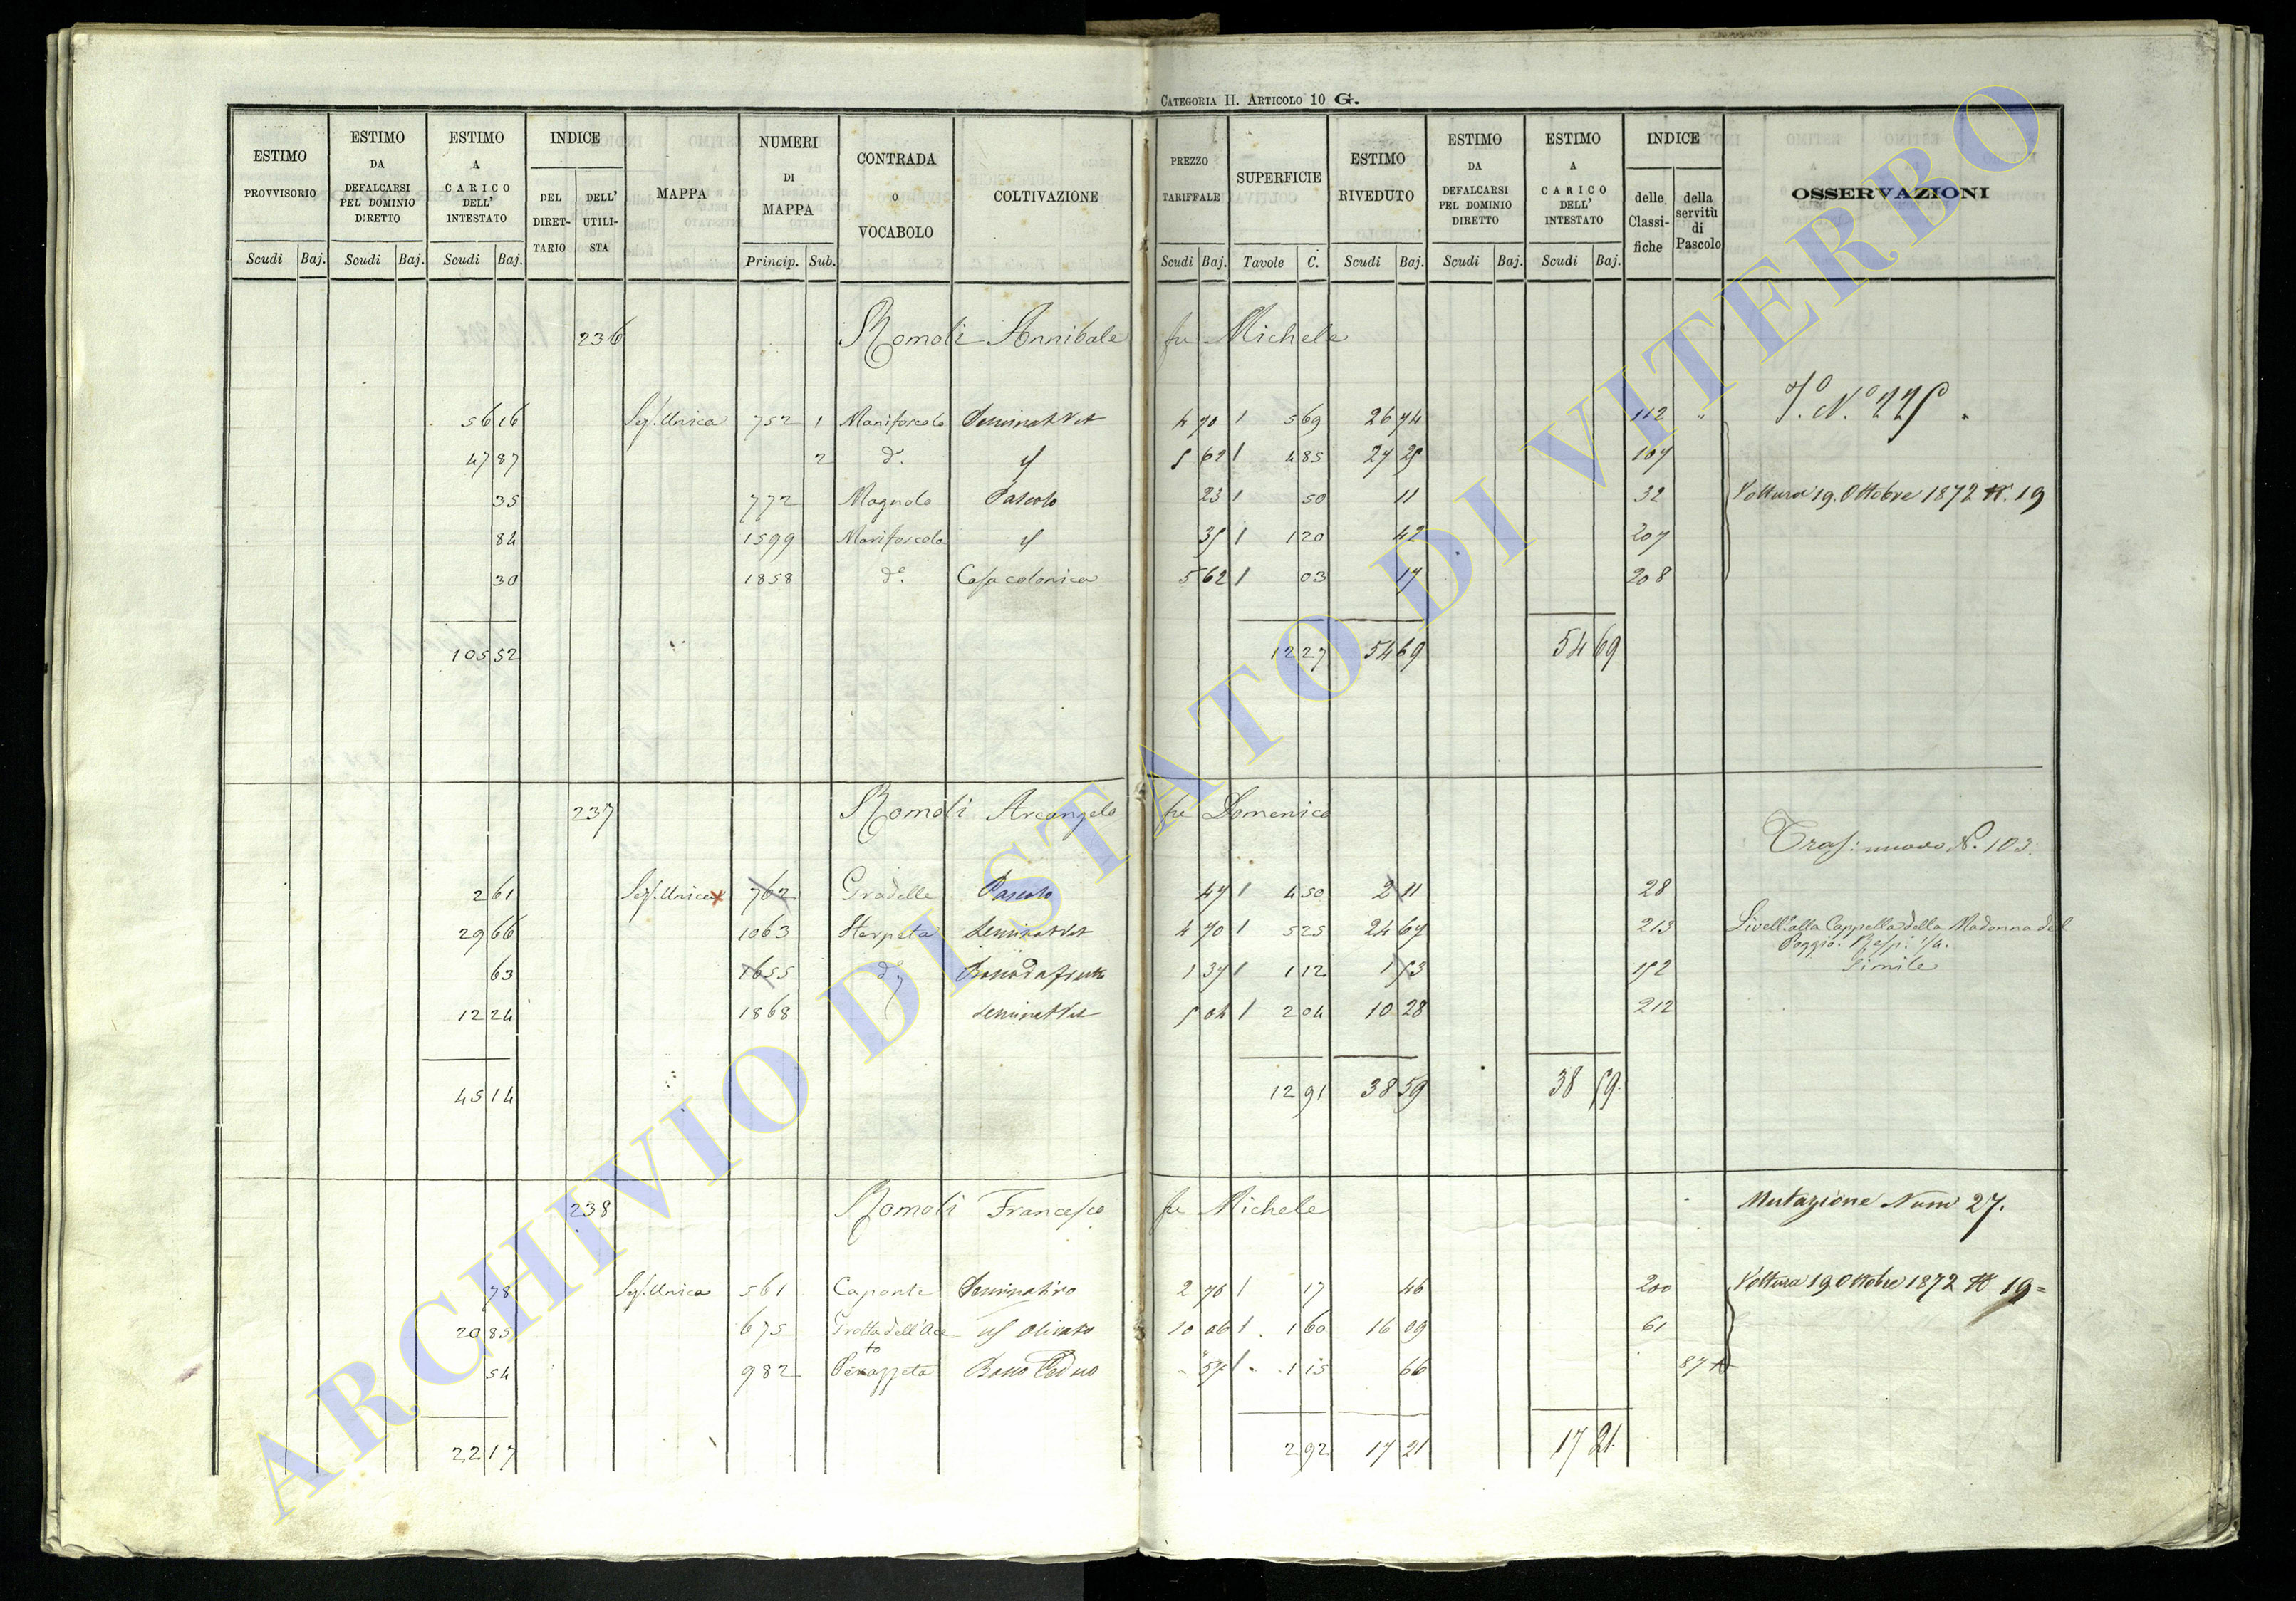 CATEGORIA II. ARTICOLO 10 G.
ESTIMO PROVVISORIO | ESTIMO DA DEFALCARSI PEL DOMINIO DIRETTO | ESTIMO A CARICO DELL' INTESTATO | INDICE DEL DIRETTARIO | DELL' UTILISTA | MAPPA | NUMERI DI MAPPA | CONTRADA O VOCABOLO | COLTIVAZIONE | PREZZO TARIFFALE | SUPERFICIE | ESTIMO RIVEDUTO | ESTIMO DA DEFALCARSI PEL DOMINIO DIRETTO | ESTIMO A CARICO DELL' INTESTATO | INDICE delle Classifiche | della servitù di Pascolo | OSSERVAZIONI
Scudi Baj. Scudi Baj. Scudi Baj. Princip. Sub. Scudi Baj. Tavole C. Scudi Baj. Scudi Baj. Scudi Baj.
236 Romoli Annibale fu Michele
56 16 Sez. Unica 752 1 Seminat Vit 4 70 1 5 69 26 74 112 "
47 87 2 d.° 5 62 1 4 85 27 25 107
35 772 Magnolo Pascolo 23 1 50 11 32 Voltura 19. Ottobre 1872 N. 19
84 1599 35 1 1 20 42 207
30 1858 d.° Casa colonica 5 62 1 03 17 208
105 52 12 27 54 69 54 69
237 Romoli Arcangelo fu Domenico
Tras: nuovo N. 103.
2 61 Sez. Unica x 762 Gradelle Pascolo 47 1 4 50 2 11 28
29 66 1063 Sterpeta Seminat Vit 4 70 1 5 25 24 67 213 Livell.° alla Cappella della Madonna del
Poggio. Resp. 1/4.
63 1655 d.° Bosco da frutto 1 37 1 1 12 1 53 152 Simile
12 24 1868 Seminat Vit 5 04 1 2 04 10 28 212
45 14 12 91 38 59 38 59.
238 Romoli Francesco fu Michele Mutazione Num 27.
78 Sez. Unica 561 Caponte Seminativo 2 70 1 17 46 200 Voltura 19 Ottobre 1872 N 19 =
20 85 675 Grotta dell' Olivato 10 06 1 1 60 16 09 61
54 982 Bosco Ceduo 57 1 1 15 66 87
22 17 2 92 17 21 17 21.
ARCHIVIO DI STATO DI VITERBO